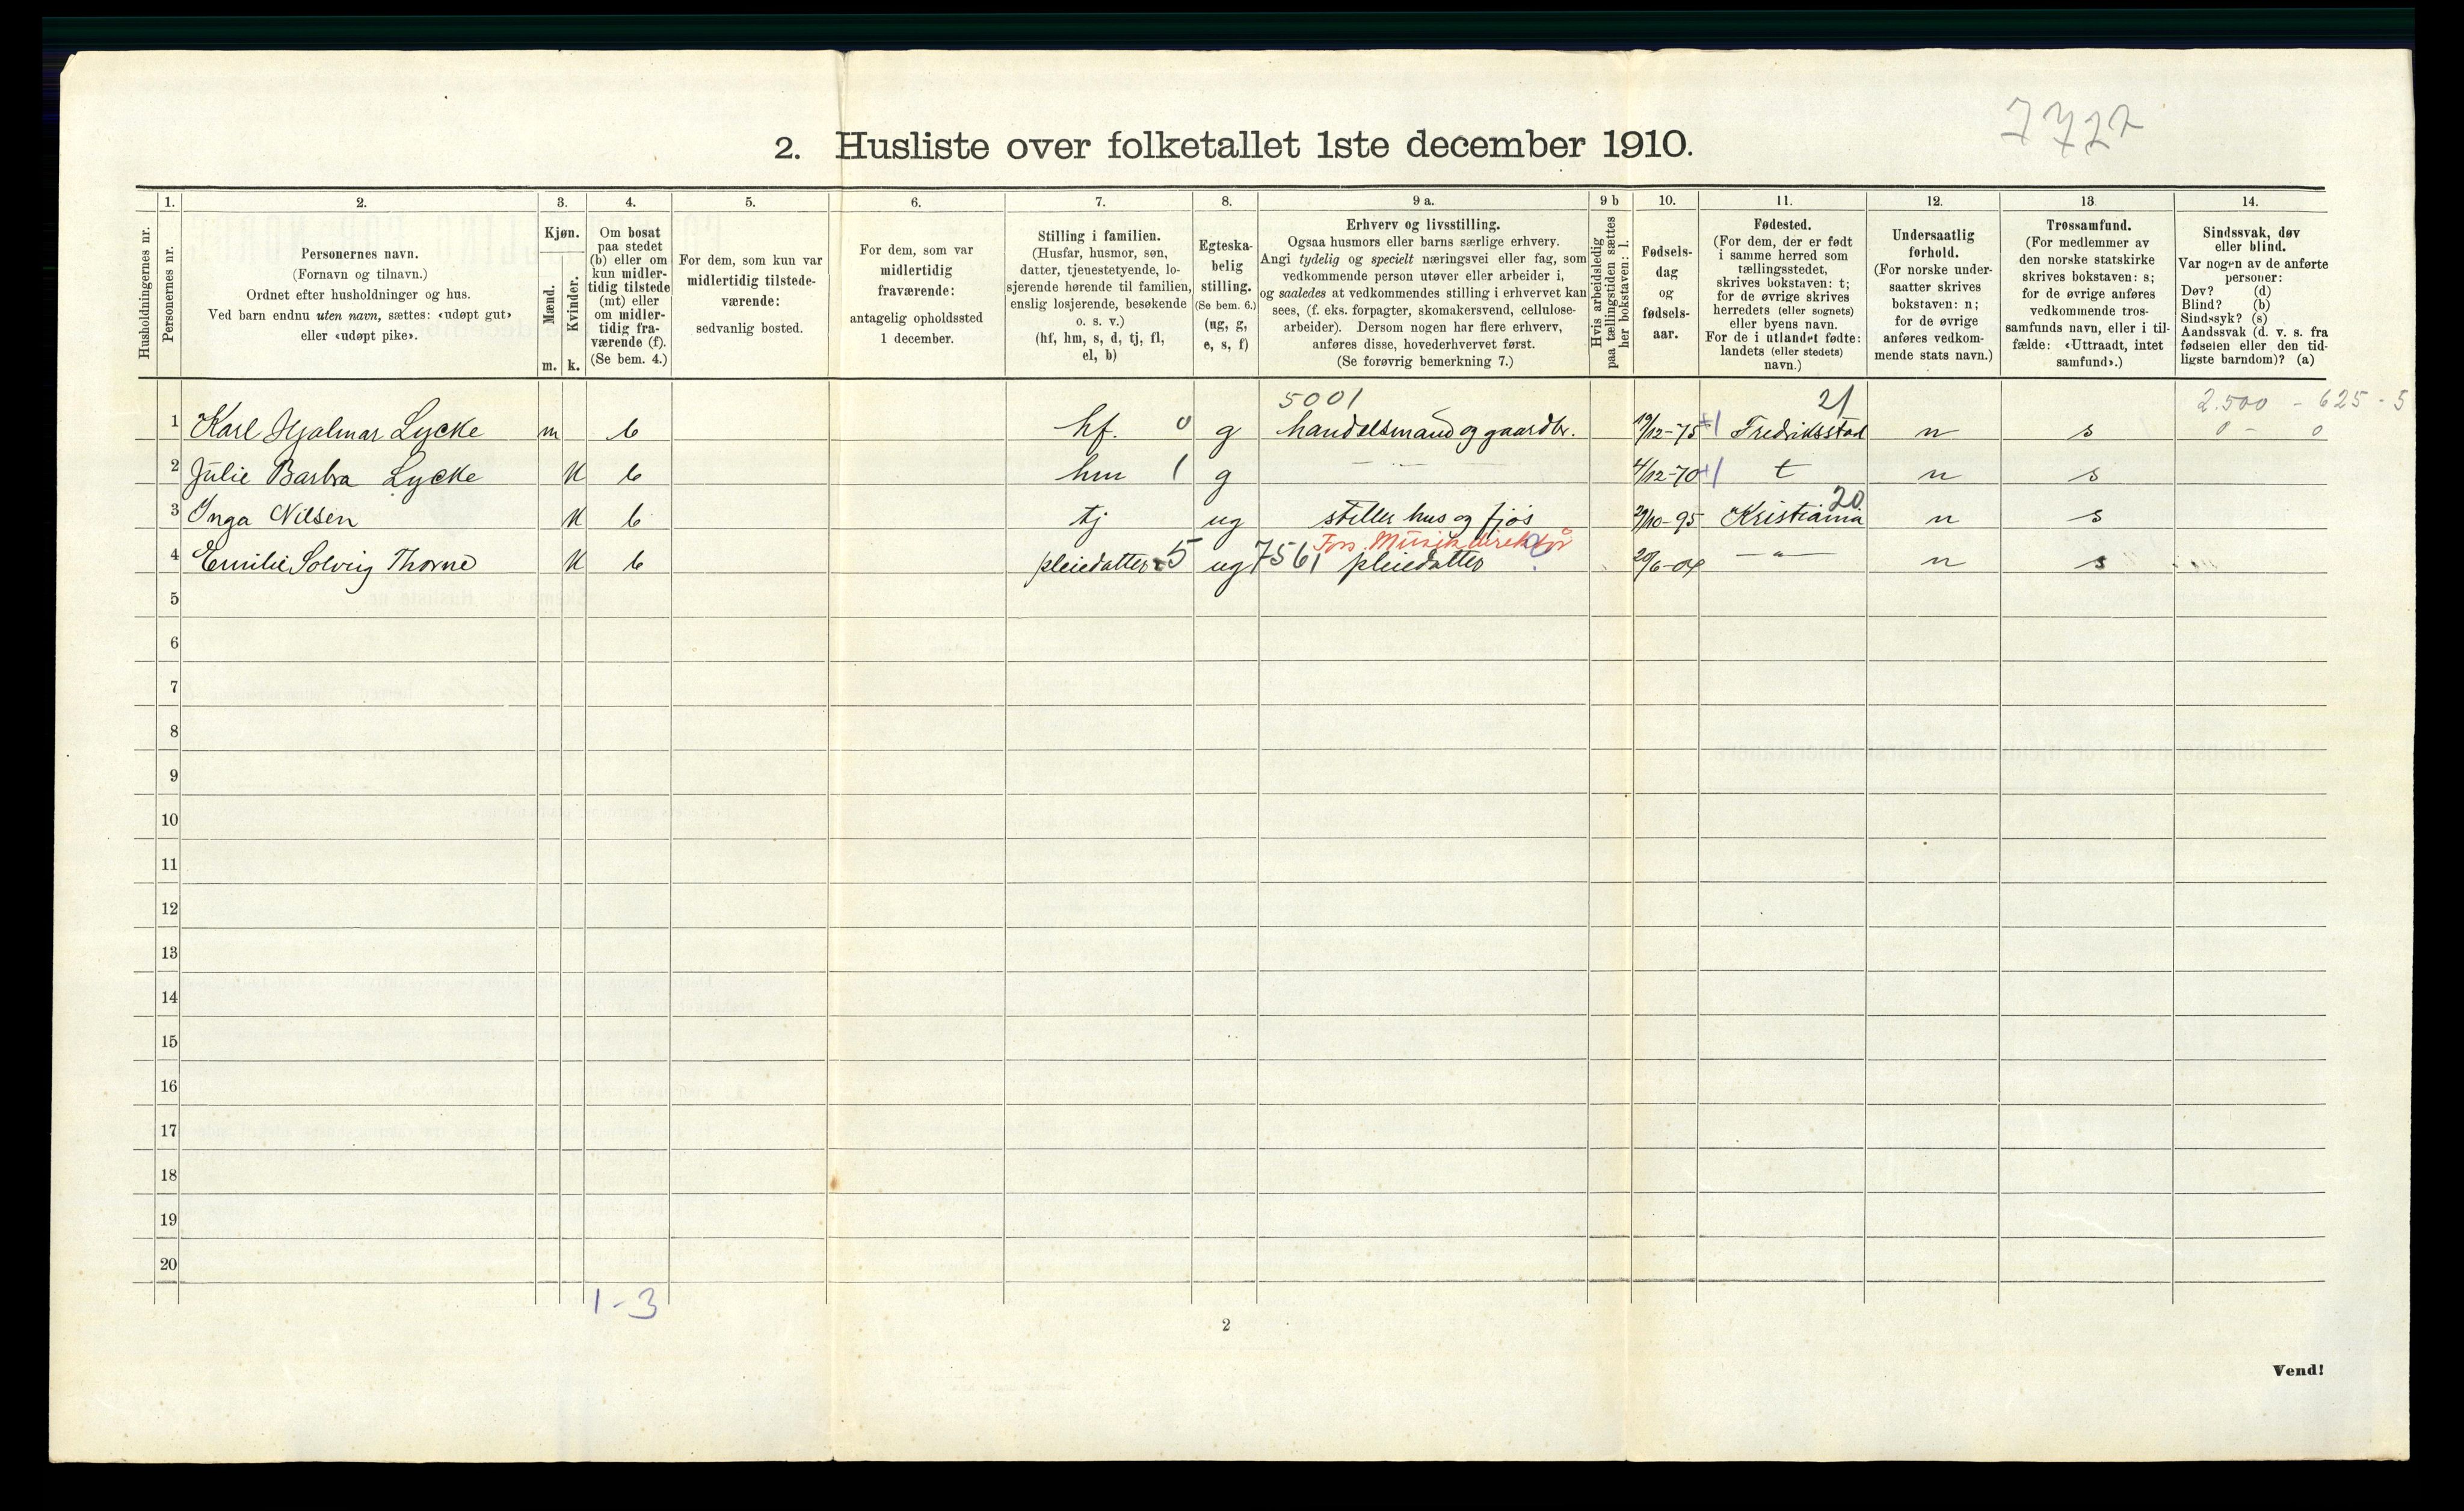 7727
2. Husliste over folketallet 1ste december 1910.
1. 2. 3. 4. 5. 6. 7. 8. 9 a. 9 b 10. 11. 12. 13 14.
Husholdningernes nr.
Personernes nr.
Personernes navn.
(Fornavn og tilnavn.)
Ordnet efter husholdninger og hus.
Ved barn endnu uten navn, sættes: «udøpt gut»
eller «udøpt pike».
Kjøn.
Mænd.
Kvinder.
m. k.
Om bosat
paa stedet
(b) eller om
kun midler-
tidig tilstede
(mt) eller
om midler-
tidig fra-
værende (f).
(Se bem. 4.)
For dem, som kun var
midlertidig tilstede-
værende:
sedvanlig bosted.
For dem, som var
midlertidig
fraværende:
antagelig opholdssted
1 december.
Stilling i familien.
(Husfar, husmor, søn,
datter, tjenestetyende, lo-
sjerende hørende til familien,
enslig losjerende, besøkende
o. s. v.)
(hf, hm, s, d, tj, fl,
el, b)
Egteska-
belig
stilling.
(Se bem. 6.)
(ug, g,
e, s, f)
Erhverv og livsstilling.
Ogsaa husmors eller barns særlige erhverv.
Angi tydelig og specielt næringsvei eller fag, som
vedkommende person utøver eller arbeider i,
og saaledes at vedkommendes stilling i erhvervet kan
sees, (f. eks. forpagter, skomakersvend, cellulose-
arbeider). Dersom nogen har flere erhverv,
anføres disse, hovederhvervet først.
(Se forøvrig bemerkning 7.)
Hvis arbeidsledig
paa tællingstiden sættes
her bokstaven: l.
Fødsels-
dag
og
fødsels-
aar.
Fødested.
(For dem, der er født
i samme herred som
tællingsstedet,
skrives bokstaven: t;
for de øvrige skrives
herredets (eller sognets)
eller byens navn.
For de i utlandet fødte:
landets (eller stedets)
navn.)
Undersaatlig
forhold.
(For norske under-
saatter skrives
bokstaven: n;
for de øvrige
anføres vedkom-
mende stats navn.)
Trossamfund.
(For medlemmer av
den norske statskirke
skrives bokstaven: s;
for de øvrige anføres
vedkommende tros-
samfunds navn, eller i til-
fælde: «Uttraadt, intet
samfund».)
Sindssvak, døv
eller blind.
Var nogen av de anførte
personer:
Døv? (d)
Blind? (b)
Sindssyk? (s)
Aandssvak (d. v. s. fra
fødselen eller den tid-
ligste barndom)? (a)
5001 21 2.500 - 625 - 5
1 Karl Hjalmar Lycke m b hf. 0 g handelsmand og gaardbr. 19/12-75 +1 Fredriksstad n s 0 - 0
2 Julie Barbra Lycke k b hm 1 g — " — 4/12-70 +1 t n s
20
3 Inga Nilsen k b tj ug steller hus og fjøs 29/10-95 Kristiania n s
Fors. Musikdirektør
4 Emilie Solveig Thorne k b pleiedatter 5 ug 7561 pleiedatter 20/6-04 — " — n s
5
6
7
8
9
10
11
12
13
14
15
16
17
18
19
20
1-3
2
Vend!